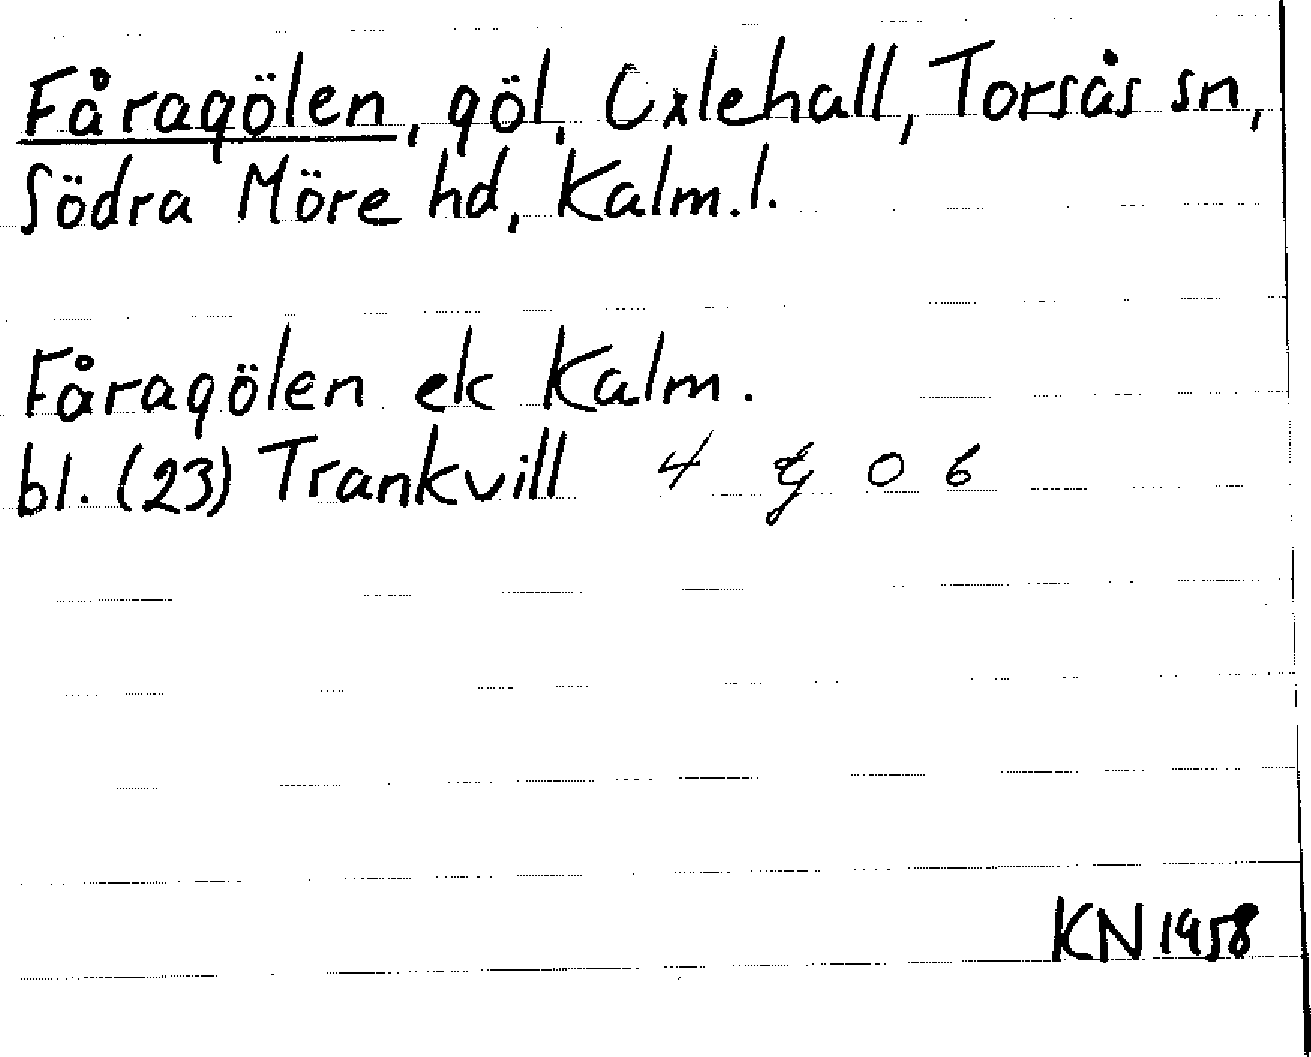 Fåragölen, göl, Oxlehall, Torsås sn,
Södra Möre hd, Kalm.l.
Fåragölen ek Kalm.
bl. (23) Trankvill 4 G 0 6
KN 1958